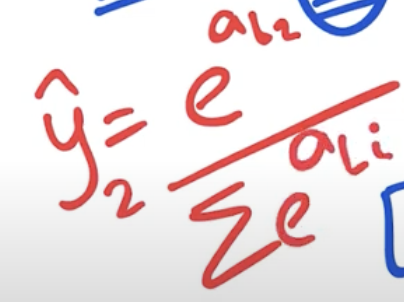 ŷ₂ = e^{a_{L2}} / Σe^{a_{Li}}